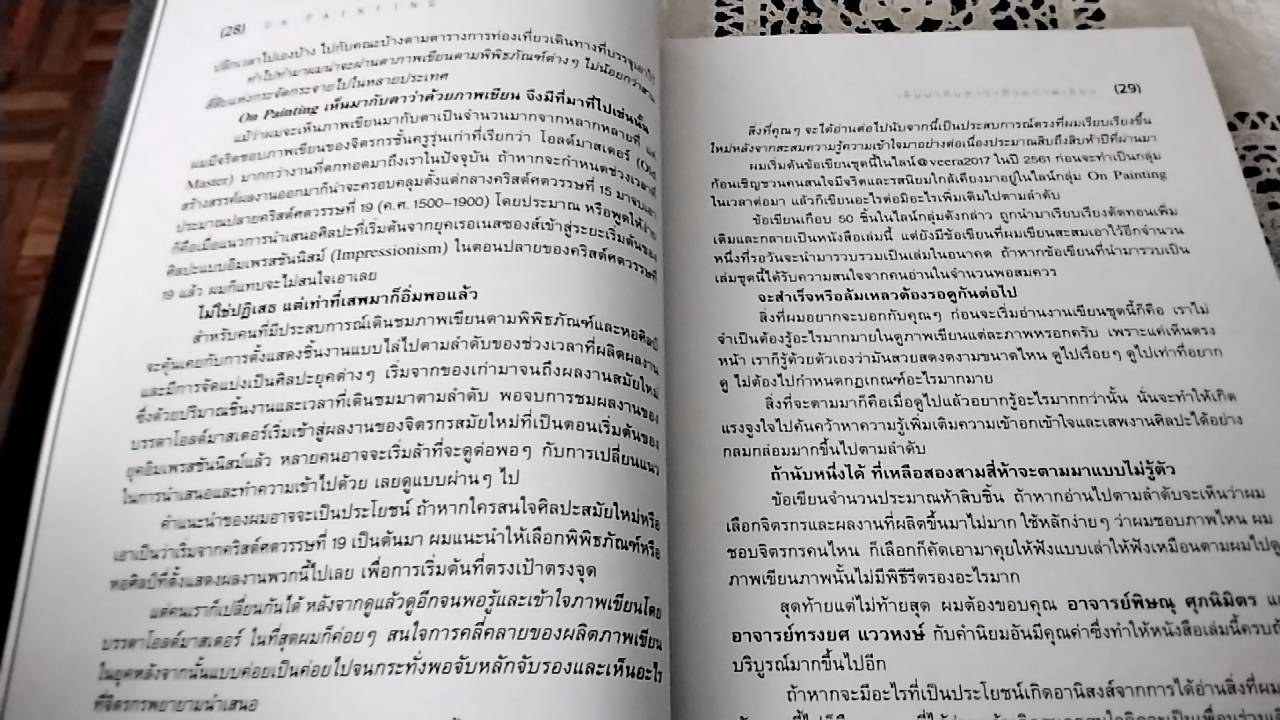 (28) ON PAINTING
ปลีกเวลาไปเองบ้าง ไปกับคณะบ้างตามตารางการท่องเที่ยวเดินทางที่บรรจุเอาไว้
ทำไปทำมาผมน่าจะผ่านตาภาพเขียนตามพิพิธภัณฑ์ต่างๆ ไม่น้อยกว่าสาม
สี่สิบแห่งกระจัดกระจายไปในหลายประเทศ
On Painting เห็นมากับตาว่าด้วยภาพเขียน จึงมีที่มาที่ไปเช่นนั้น
แม้ว่าผมจะเห็นภาพเขียนมากับตาเป็นจำนวนมากจากหลากหลายที่ แต่
ผมมีจริตชอบภาพเขียนของจิตรกรชั้นครูรุ่นเก่าที่เรียกว่า โอลด์มาสเตอร์ (Old
Master) มากกว่างานที่ตกทอดมาถึงเราในปัจจุบัน ถ้าหากจะกำหนดช่วงเวลาที่
สร้างสรรค์ผลงานออกมาก็น่าจะครอบคลุมตั้งแต่กลางคริสต์ศตวรรษที่ 15 มาจนเอา
ประมาณปลายคริสต์ศตวรรษที่ 19 (ค.ศ. 1500-1900) โดยประมาณ หรือพูดให้ง่าย
ก็คือเมื่อแนวการนำเสนอศิลปะที่เริ่มต้นจากยุคเรอเนสซองส์เข้าสู่ระยะเริ่มต้นของ
ศิลปะแบบอิมเพรสชันนิสม์ (Impressionism) ในตอนปลายของคริสต์ศตวรรษที่
19 แล้ว ผมก็แทบจะไม่สนใจเอาเลย
ไม่ใช่ปฏิเสธ แต่เท่าที่เสพมาก็อิ่มพอแล้ว
สำหรับคนที่มีประสบการณ์เดินชมภาพเขียนตามพิพิธภัณฑ์และหอศิลป์
จะคุ้นเคยกับการตั้งแสดงชิ้นงานแบบไล่ไปตามลำดับของช่วงเวลาที่ผลิตผลงาน
และมีการจัดแบ่งเป็นศิลปะยุคต่างๆ เริ่มจากของเก่ามาจนถึงผลงานสมัยใหม่
ซึ่งด้วยปริมาณชิ้นงานและเวลาที่เดินชมมาตามลำดับ พอจบการชมผลงานของ
บรรดาโอลด์มาสเตอร์เริ่มเข้าสู่ผลงานของจิตรกรสมัยใหม่ที่เป็นตอนเริ่มต้นของ
ยุคอิมเพรสชันนิสม์แล้ว หลายคนอาจจะเริ่มล้าที่จะดูต่อพอๆ กับการเปลี่ยนแนว
ในการนำเสนอและทำความเข้าไปด้วย เลยดูแบบผ่านๆ ไป
คำแนะนำของผมอาจจะเป็นประโยชน์ ถ้าหากใครสนใจศิลปะสมัยใหม่หรือ
เอาเป็นว่าเริ่มจากคริสต์ศตวรรษที่ 19 เป็นต้นมา ผมแนะนำให้เลือกพิพิธภัณฑ์หรือ
หอศิลป์ที่ตั้งแสดงผลงานพวกนี้ไปเลย เพื่อการเริ่มต้นที่ตรงเป้าตรงจุด
แต่คนเราก็เปลี่ยนกันได้ หลังจากดูแล้วดูอีกจนพอรู้และเข้าใจภาพเขียนโดย
บรรดาโอลด์มาสเตอร์ ในที่สุดผมก็ค่อยๆ สนใจการคลี่คลายของผลิตภาพเขียน
ในยุคหลังจากนั้นแบบค่อยเป็นค่อยไปจนกระทั่งพอจับหลักจับรองและเห็นอะไร
ที่จิตรกรพยายามนำเสนอ
เห็นมากับตาว่าด้วยภาพเขียน (29)
สิ่งที่คุณๆ จะได้อ่านต่อไปนับจากนี้เป็นประสบการณ์ตรงที่ผมเรียบเรียงขึ้น
ใหม่หลังจากสะสมความรู้ความเข้าใจมาอย่างต่อเนื่องประมาณสิบถึงสิบห้าปีที่ผ่านมา
ผมเริ่มต้นข้อเขียนชุดนี้ในไลน์@veera2017 ในปี 2561 ก่อนจะทำเป็นกลุ่ม
ก้อนเชิญชวนคนสนใจมีจริตและรสนิยมใกล้เคียงมาอยู่ในไลน์กลุ่ม On Painting
ในเวลาต่อมา แล้วก็เขียนอะไรต่อมิอะไรเพิ่มเติมไปตามลำดับ
ข้อเขียนเกือบ 50 ชิ้นในไลน์กลุ่มดังกล่าว ถูกนำมาเรียบเรียงตัดทอนเพิ่ม
เติมและกลายเป็นหนังสือเล่มนี้ แต่ยังมีข้อเขียนที่ผมเขียนสะสมเอาไว้อีกจำนวน
หนึ่งที่รอวันจะนำมารวบรวมเป็นเล่มในอนาคต ถ้าหากข้อเขียนที่นำมารวบเป็น
เล่มชุดนี้ได้รับความสนใจจากคนอ่านในจำนวนพอสมควร
จะสำเร็จหรือล้มเหลวต้องรอดูกันต่อไป
สิ่งที่ผมอยากจะบอกกับคุณๆ ก่อนจะเริ่มอ่านงานเขียนชุดนี้ก็คือ เราไม่
จำเป็นต้องรู้อะไรมากมายในดูภาพเขียนแต่ละภาพหรอกครับ เพราะแค่เห็นตรง
หน้า เราก็รู้ด้วยตัวเองว่ามันสวยสดงดงามขนาดไหน ดูไปเรื่อยๆ ดูไปเท่าที่อยาก
ดู ไม่ต้องไปกำหนดกฎเกณฑ์อะไรมากมาย
สิ่งที่จะตามมาก็คือเมื่อดูไปแล้วอยากรู้อะไรมากกว่านั้น นั่นจะทำให้เกิด
แรงจูงใจไปค้นคว้าหาความรู้เพิ่มเติมความเข้าอกเข้าใจและเสพงานศิลปะได้อย่าง
กลมกล่อมมากขึ้นไปตามลำดับ
ถ้านับหนึ่งได้ ที่เหลือสองสามสี่ห้าจะตามมาแบบไม่รู้ตัว
ข้อเขียนจำนวนประมาณห้าสิบชิ้น ถ้าหากอ่านไปตามลำดับจะเห็นว่าผม
เลือกจิตรกรและผลงานที่ผลิตขึ้นมาไม่มาก ใช้หลักง่ายๆ ว่าผมชอบภาพไหน ผม
ชอบจิตรกรคนไหน ก็เลือกก็คัดเอามาคุยให้ฟังแบบเล่าให้ฟังเหมือนตามผมไปดู
ภาพเขียนภาพนั้นไม่มีพิธีรีตรองอะไรมาก
สุดท้ายแต่ไม่ท้ายสุด ผมต้องขอบคุณ อาจารย์พิษณุ ศุภนิมิตร
อาจารย์ทรงยศ แววหงษ์ กับคำนิยมอันมีคุณค่าซึ่งทำให้หนังสือเล่มนี้ครบถ้
บริบูรณ์มากขึ้นไปอีก
ถ้าหากจะมีอะไรที่เป็นประโยชน์เกิดอานิสงส์จากการได้อ่านสิ่งที่ผม